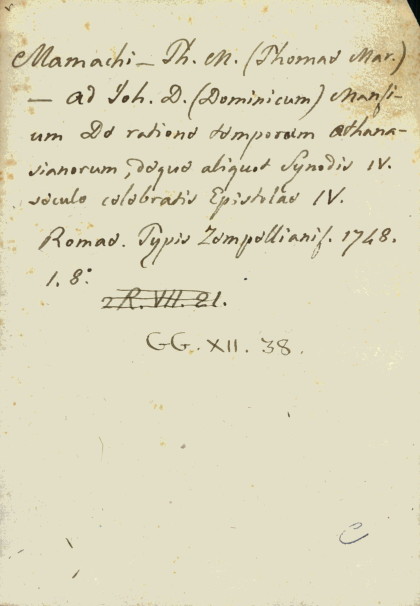 Mamachi — Th. M. (Thomae Mar.)
— ad Joh. D. (Dominicum) Mansi-
um De ratione temporum Athana-
sianorum, deque aliquot Synodis IV.
seculo celebratis Epistolae IV.
Romae. Typis Zempellianis. 1748.
1. 8°
R. VII. 21.
GG. XII. 38.
C